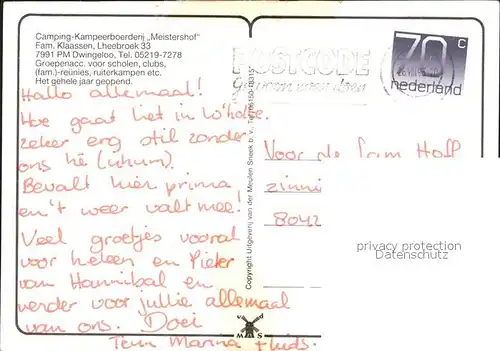 Camping-Kampeerboerderij „Meistershof"
Fam. Klaassen, Lheebroek 33
7991 PM Dwingeloo, Tel. 05219-7278
Groepenacc. voor scholen, clubs,
(fam.)-reünies, ruiterkampen etc.
Het gehele jaar geopend.
Hallo allemaal!
Hoe gaat het in
zeker erg stil zonder
ons hè (uhum).
Bevalt hier prima
en 't weer valt mee!
Veel groetjes vooral
voor heleen en Pieter
van Hannibal en
verder voor jullie allemaal
van ons. Doei
Teun Marina
Copyright Uitgeverij van der Meulen Sneek b.v. Tel. (05150-18315)
v d
M S
POSTCODE
70 c
nederland
Voor de fam Hoff
8042
privacy protection
Datenschutz